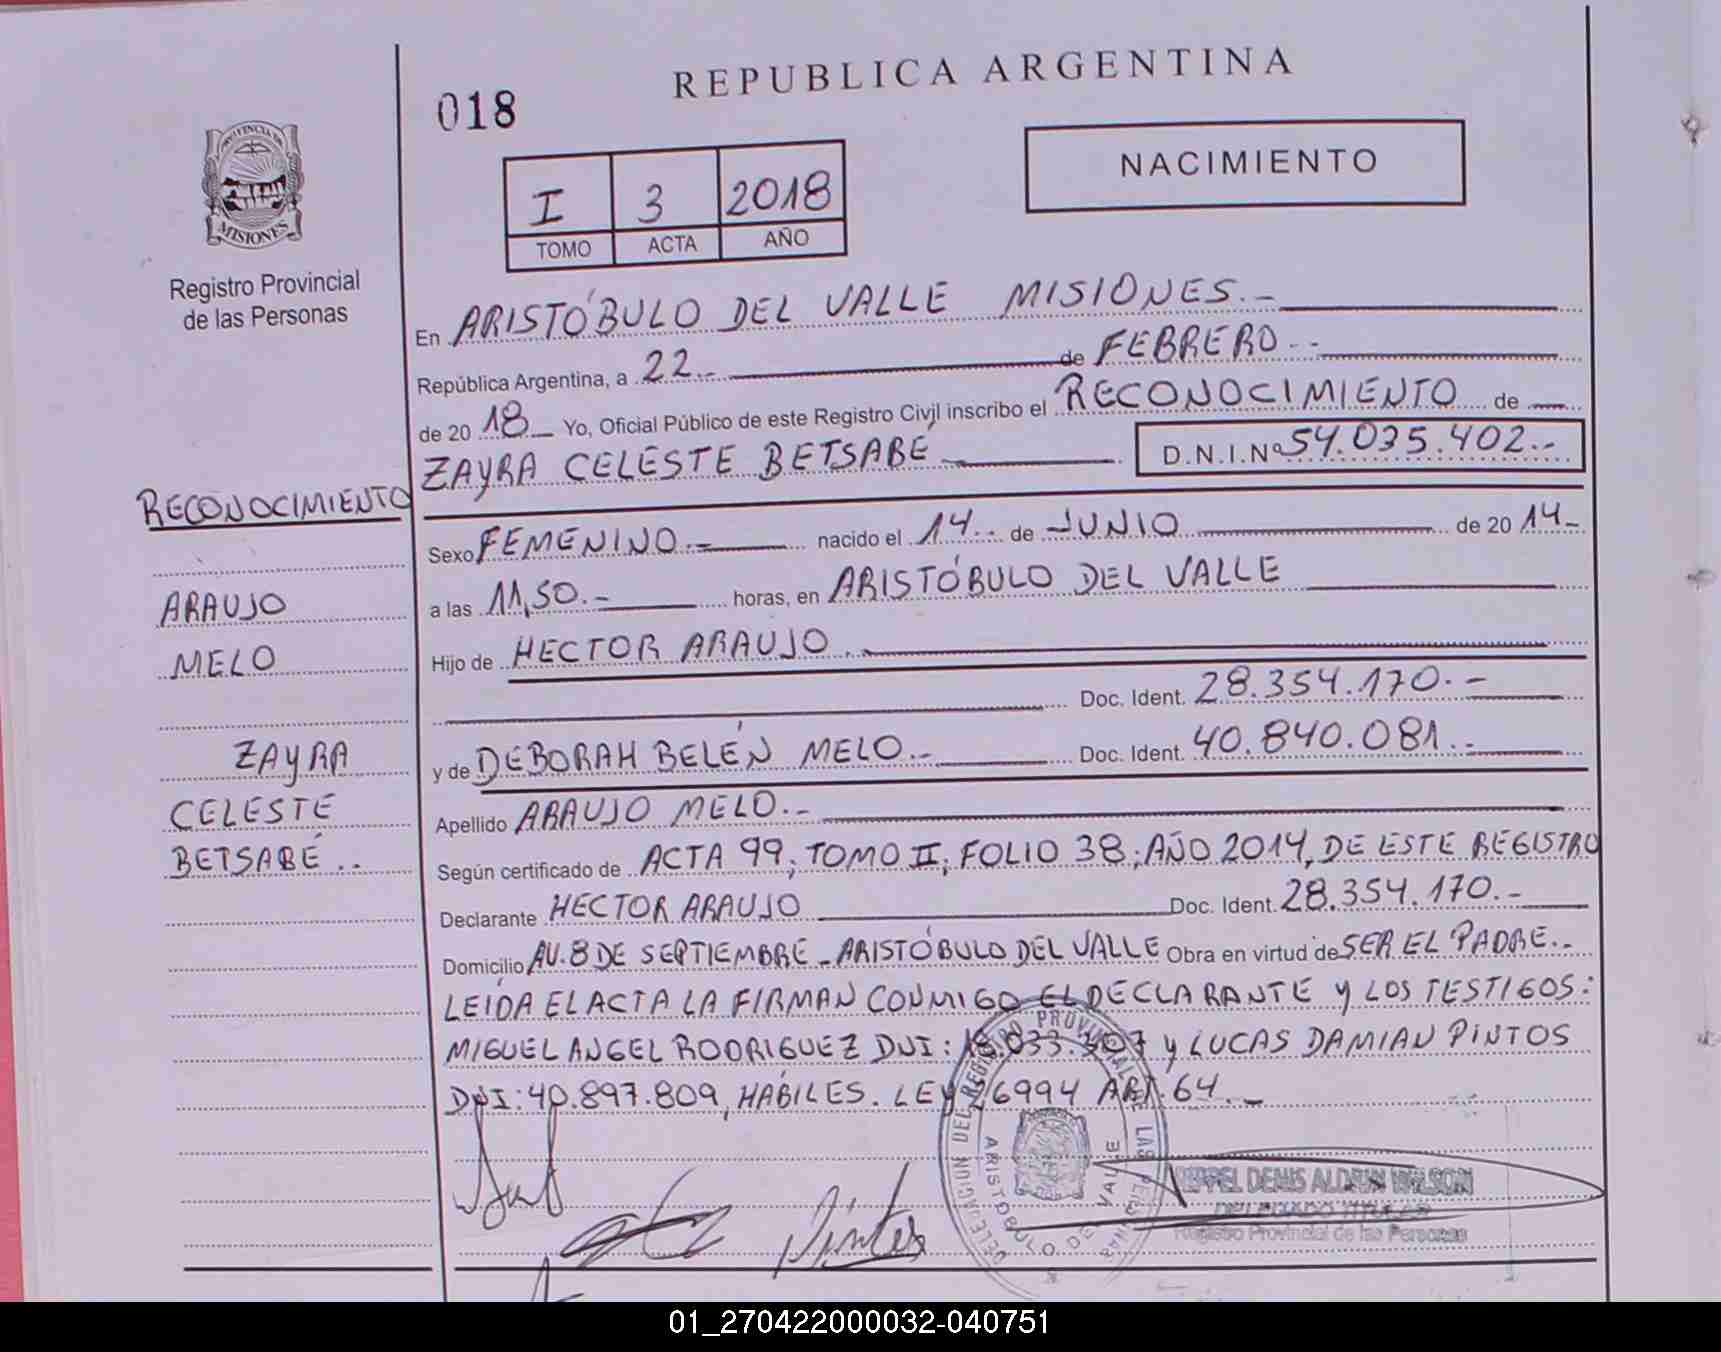 REPUBLICA ARGENTINA
018
NACIMIENTO
I 3 2018
TOMO ACTA AÑO
MISIONES
Registro Provincial
de las Personas
En ARISTÓBULO DEL VALLE MISIONES.-
República Argentina, a 22.- de FEBRERO.-
de 2018 Yo, Oficial Público de este Registro Civil inscribo el RECONOCIMIENTO de
ZAYRA CELESTE BETSABÉ D.N.I.Nº 54.035.402.-
RECONOCIMIENTO
Sexo FEMENINO.- nacido el 14.. de JUNIO de 2014-
a las 11,50.- horas, en ARISTÓBULO DEL VALLE
ARAUJO
MELO
Hijo de HECTOR ARAUJO.
Doc. Ident. 28.354.170.-
ZAYRA
y de DEBORAH BELÉN MELO.- Doc. Ident. 40.840.081.-
CELESTE
Apellido ARAUJO MELO.-
BETSABÉ..
Según certificado de ACTA 99; TOMO II; FOLIO 38; AÑO 2014, DE ESTE REGISTRO
Declarante HECTOR ARAUJO Doc. Ident. 28.354.170.-
Domicilio AV. 8 DE SEPTIEMBRE - ARISTÓBULO DEL VALLE Obra en virtud de SER EL PADRE.-
LEÍDA EL ACTA LA FIRMAN CONMIGO EL DECLARANTE Y LOS TESTIGOS:
MIGUEL ANGEL RODRIGUEZ DNI: Y LUCAS DAMIAN PINTOS
DNI: 40.897.809, HÁBILES. LEY 26994 ART. 64.-
DELEGACION DEL REGISTRO PROVINCIAL DE LAS PERSONAS
ARISTOBULO DEL VALLE
Pintos
DENIS ALDRIN WILSON
DELEGADO TITULAR
Registro Provincial de las Personas
01_270422000032-040751